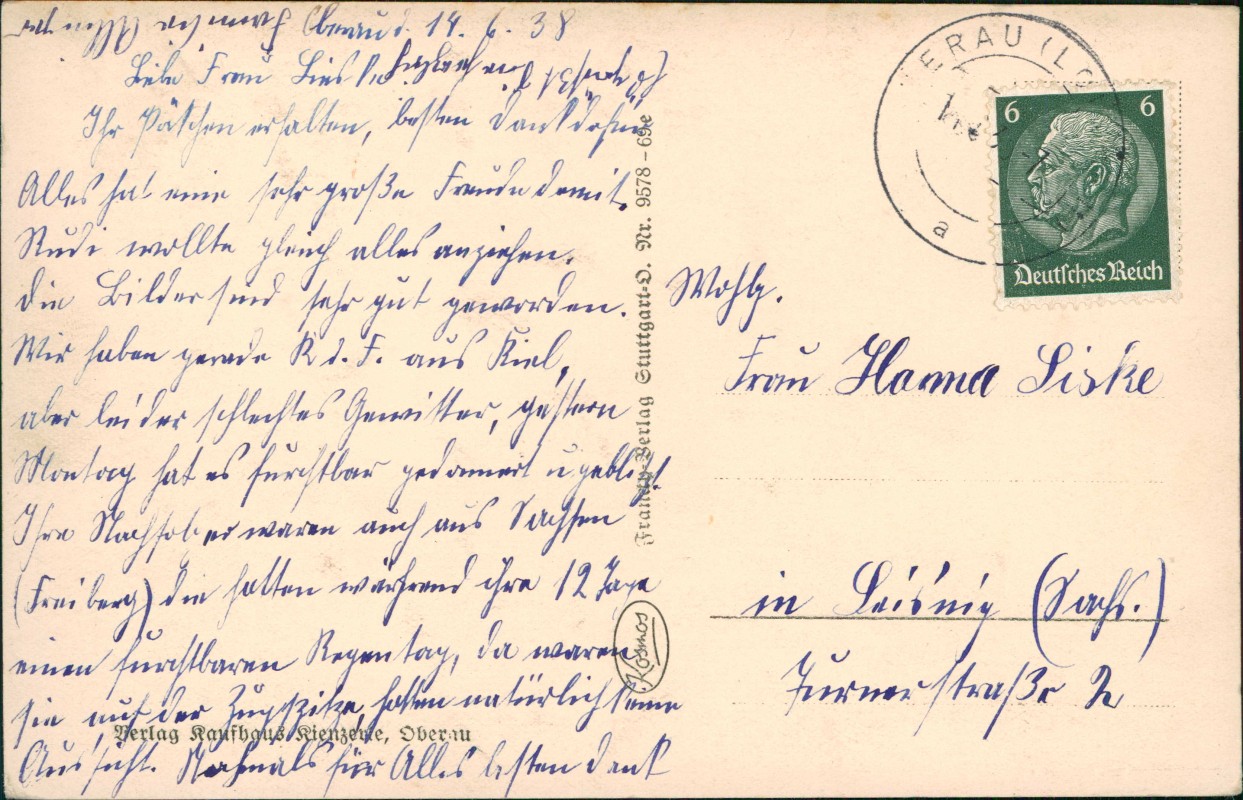 Oberau d. 14. 6. 38
Liebe Frau Liske
Ihr Päckchen erhalten, besten Dank dafür
Alles hat eine sehr große Freude damit.
Rudi wollte gleich alles anziehen.
Die Bilder sind sehr gut geworden.
Wir haben gerade K d. F. aus Kiel,
aber leider schlechtes Gewitter, gestern
Montag hat es furchtbar gedonnert u geblitzt
Ihre Nachfolger waren auch aus Sachsen
(Freiberg) die hatten während ihre 12 Tage
einen furchtbaren Regentag, da waren
sie auf der Zugspitze, hatten natürlich keine
Aussicht. Nochmals für Alles besten Dank
Verlag Kaufhaus Kienzerle, Oberau
Franckh-Verlag Stuttgart-O. Nr. 9578-69e
Kosmos
ERAU (LO
a
6 6
Deutsches Reich
Wohlg.
Frau Hanna Liske
in Leisnig (Sachs.)
Turnerstraße 2